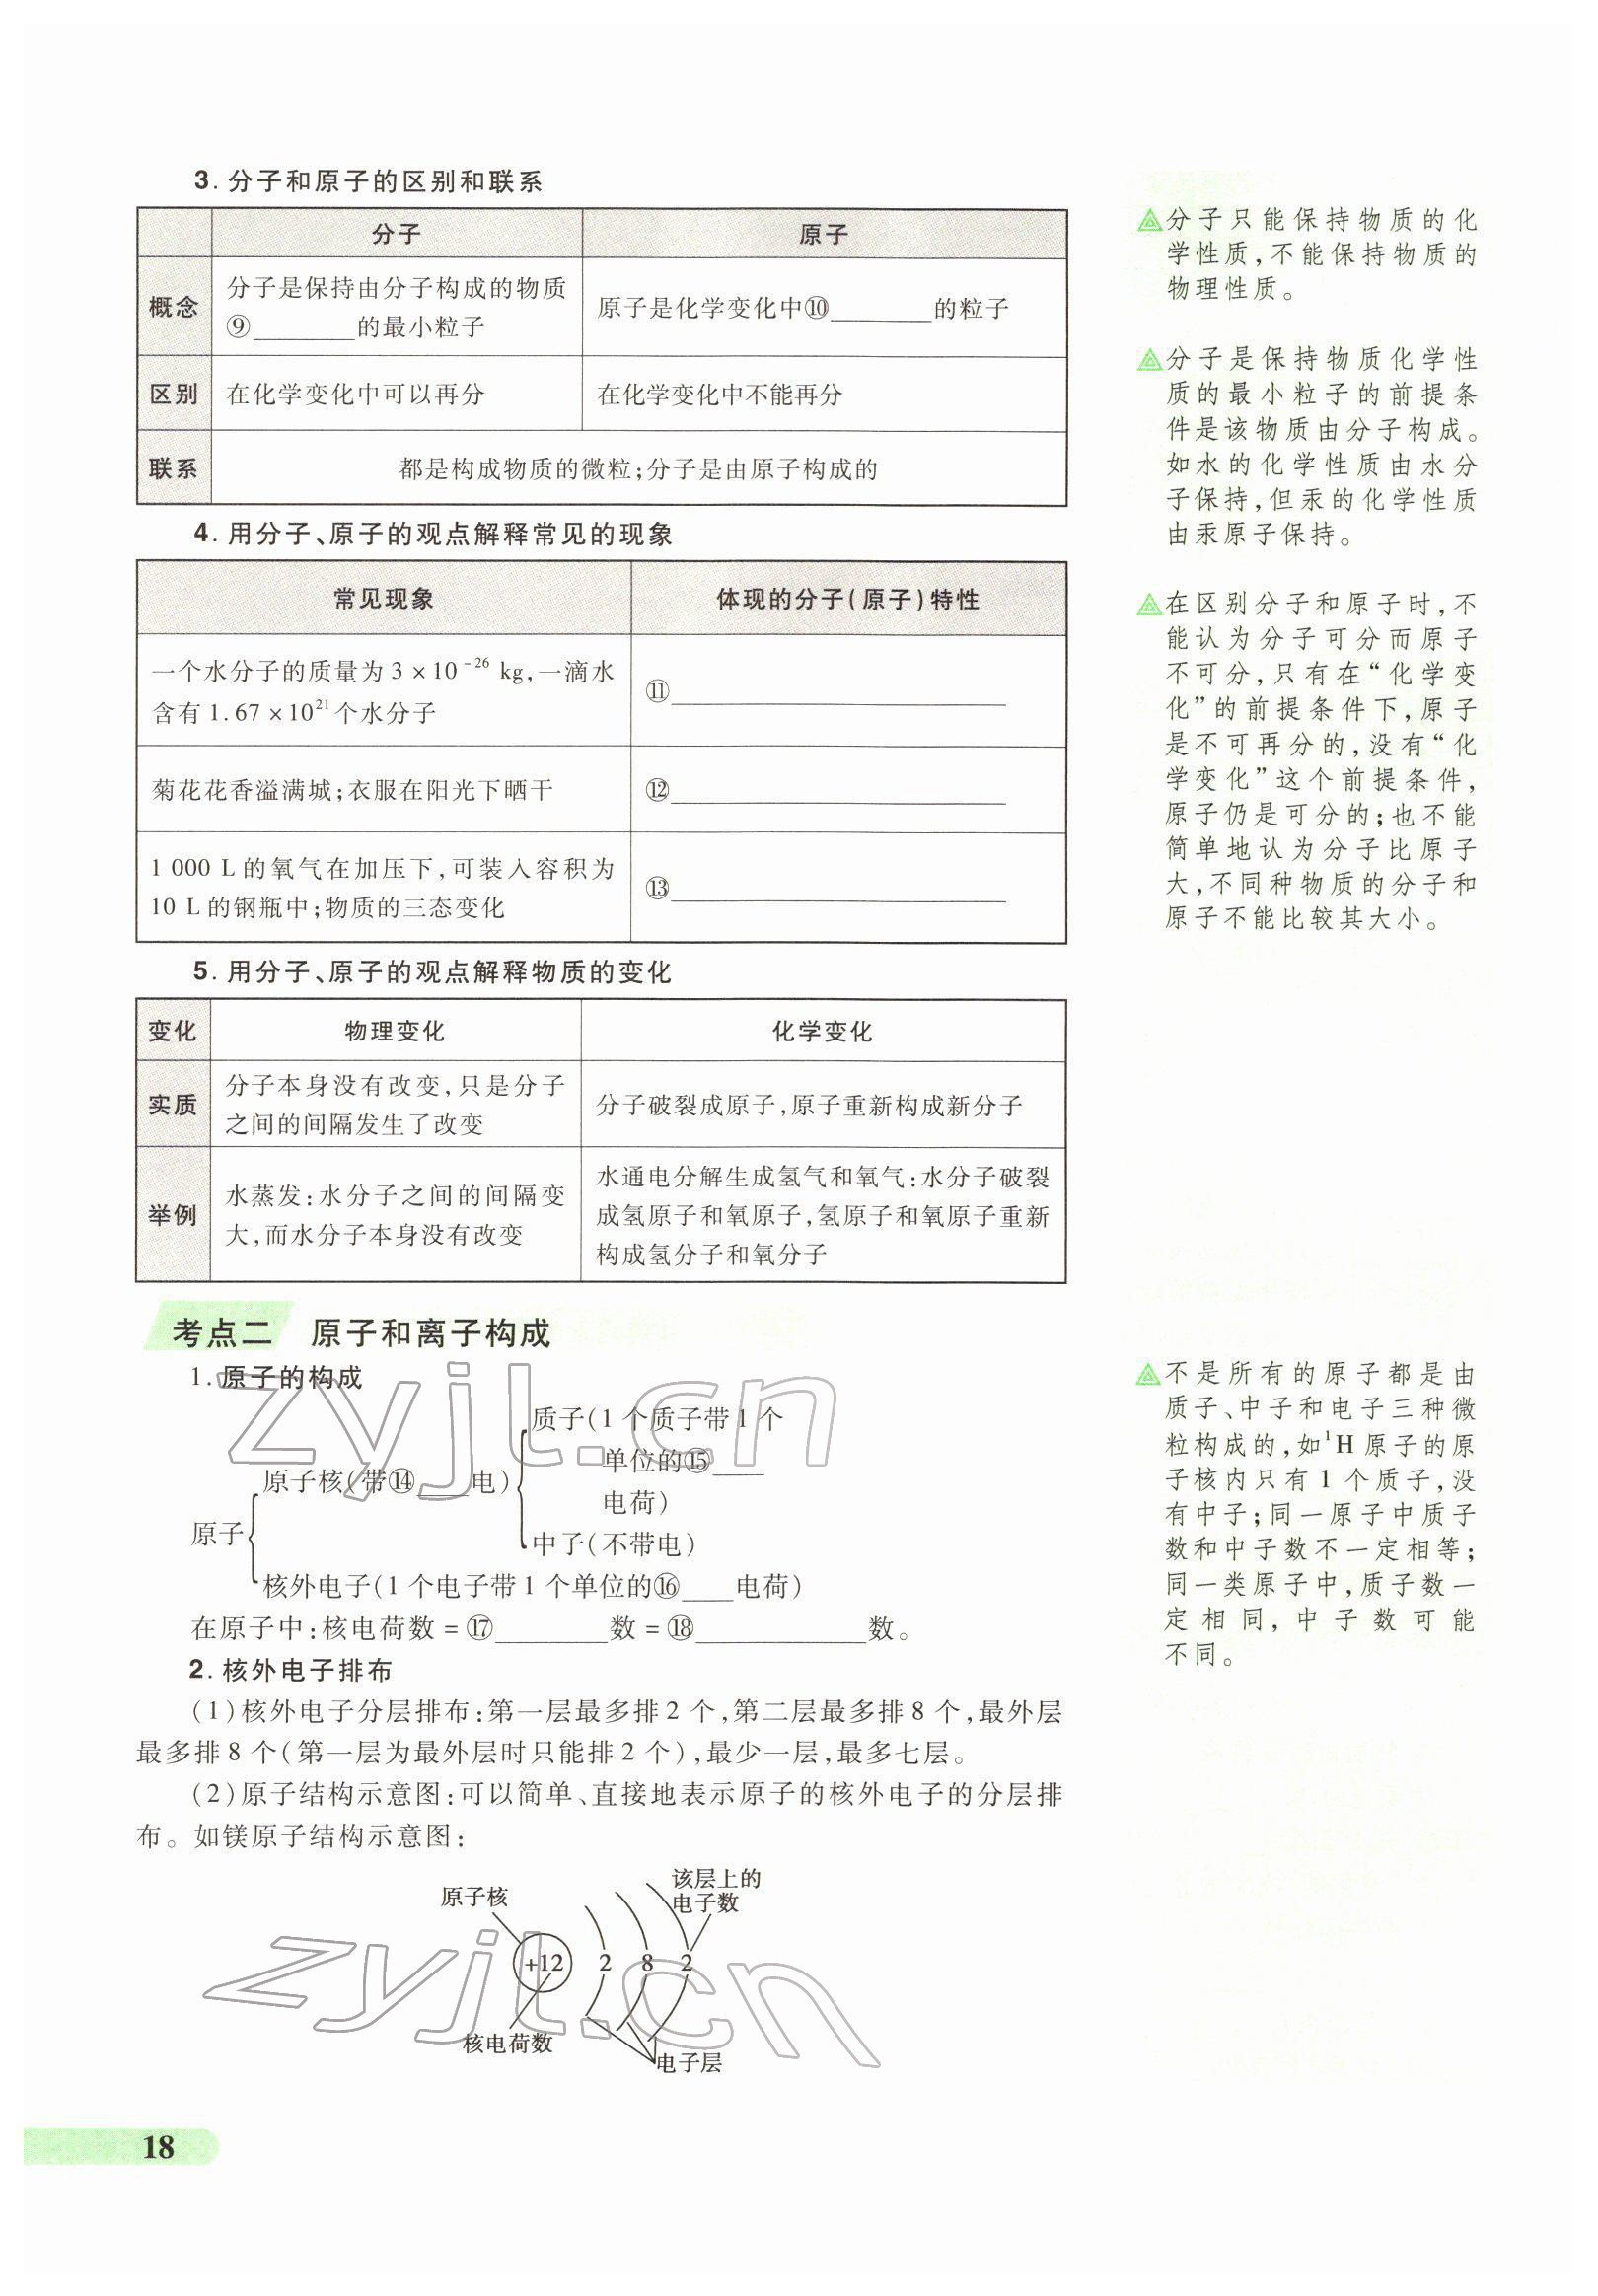 3. 分子和原子的区别和联系
分子 原子
概念 分子是保持由分子构成的物质
⑨________的最小粒子 原子是化学变化中⑩________的粒子
区别 在化学变化中可以再分 在化学变化中不能再分
联系 都是构成物质的微粒;分子是由原子构成的
4. 用分子、原子的观点解释常见的现象
常见现象 体现的分子(原子)特性
一个水分子的质量为 3 × 10⁻²⁶ kg,一滴水
含有 1. 67 × 10²¹ 个水分子 ⑪________
菊花花香溢满城;衣服在阳光下晒干 ⑫________
1 000 L 的氧气在加压下,可装入容积为
10 L 的钢瓶中;物质的三态变化 ⑬________
5. 用分子、原子的观点解释物质的变化
变化 物理变化 化学变化
实质 分子本身没有改变,只是分子
之间的间隔发生了改变 分子破裂成原子,原子重新构成新分子
举例 水蒸发:水分子之间的间隔变
大,而水分子本身没有改变 水通电分解生成氢气和氧气:水分子破裂
成氢原子和氧原子,氢原子和氧原子重新
构成氢分子和氧分子
考点二 原子和离子构成
1. 原子的构成
原子
原子核(带⑭____电)
质子(1 个质子带 1 个
单位的⑮____
电荷)
中子(不带电)
核外电子(1 个电子带 1 个单位的⑯____电荷)
在原子中:核电荷数 = ⑰________数 = ⑱____________数。
2. 核外电子排布
(1)核外电子分层排布:第一层最多排 2 个,第二层最多排 8 个,最外层
最多排 8 个(第一层为最外层时只能排 2 个),最少一层,最多七层。
(2)原子结构示意图:可以简单、直接地表示原子的核外电子的分层排
布。如镁原子结构示意图:
原子核
该层上的
电子数
+12 2 8 2
核电荷数
电子层
zyjl.cn
zyjl.cn
18
分子只能保持物质的化
学性质,不能保持物质的
物理性质。
分子是保持物质化学性
质的最小粒子的前提条
件是该物质由分子构成。
如水的化学性质由水分
子保持,但汞的化学性质
由汞原子保持。
在区别分子和原子时,不
能认为分子可分而原子
不可分,只有在“化学变
化”的前提条件下,原子
是不可再分的,没有“化
学变化”这个前提条件,
原子仍是可分的;也不能
简单地认为分子比原子
大,不同种物质的分子和
原子不能比较其大小。
不是所有的原子都是由
质子、中子和电子三种微
粒构成的,如¹H 原子的原
子核内只有 1 个质子,没
有中子;同一原子中质子
数和中子数不一定相等;
同一类原子中,质子数一
定相同,中子数可能
不同。